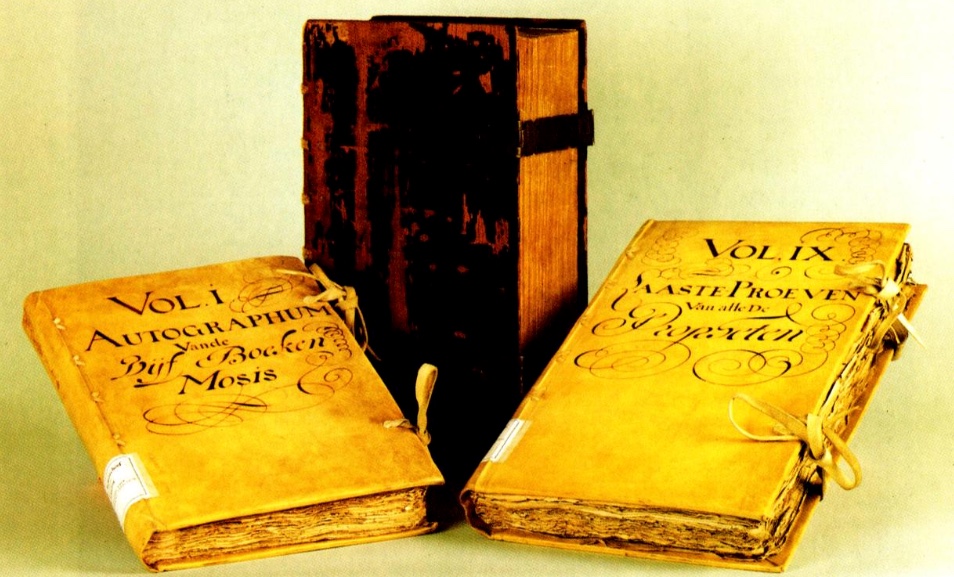 VOL. I
AUTOGRAPHUM
Vande
Vijf Boeken
Mosis
VOL. IX
LAASTE PROEVEN
Van alle De
Propheten